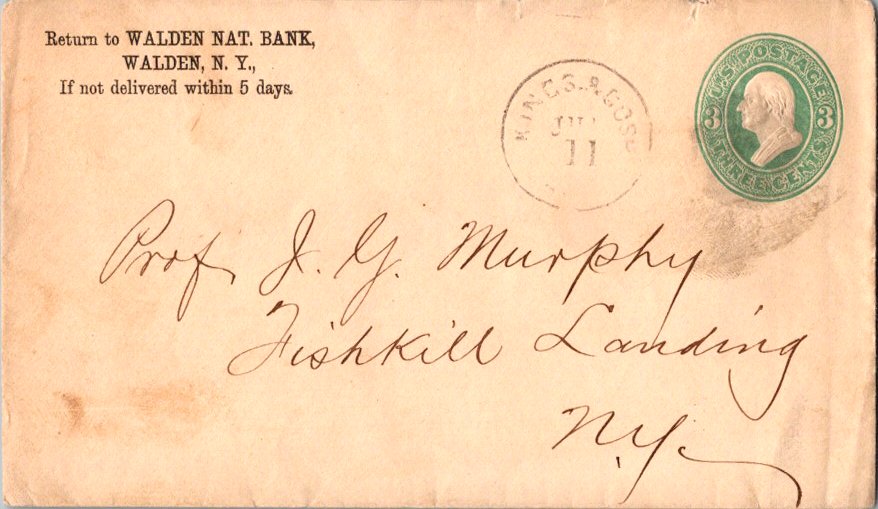 Return to WALDEN NAT. BANK,
WALDEN, N. Y.,
If not delivered within 5 days.
KINGS. & GOS
11
U.S. POSTAGE
3 3
THREE CENTS
Prof. J. G. Murphy
Fishkill Landing
N.Y.